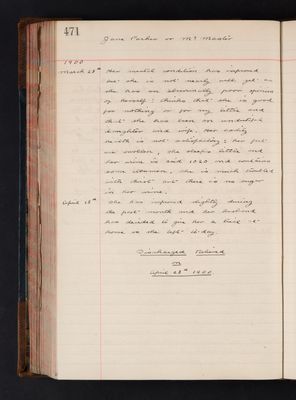 471
Jane Parker or McMaster
1900
March 28th Her mental condition has improved
but she is not nearly well yet as
she has an abnormally poor opinion
of herself: thinks that she is good
for nothing or for very little and
that she has been an undutiful
daughter and wife. Her bodily
health is not satisfactory; her feet
are swollen, she sleeps little and
her urine is acid 1020 and contains
some albumen, she is much troubled
with thirst but there is no sugar
in her urine.
April 28th She has improved slightly during
the past month and her husband
has decided to give her a trial at
home so she left to-day.
Discharged Relieved
on
April 28th 1900.